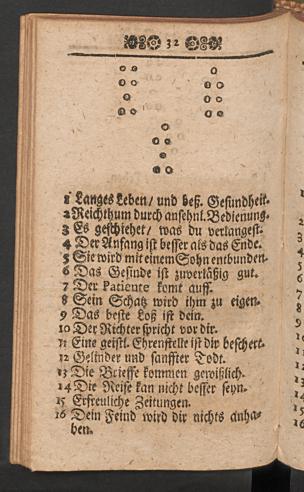 32
1 Langes Leben/ und beß. Gesundheit.
2 Reichthum durch ansehnl. Bedienung.
3 Es geschiehet/ was du verlangest.
4 Der Anfang ist besser als das Ende.
5 Sie wird mit einem Sohn entbunden.
6 Das Gesinde ist zuverläßig gut.
7 Der Patiente komt auff.
8 Sein Schatz wird ihm zu eigen.
9 Das beste Loß ist dein.
10 Der Richter spricht vor dir.
11 Eine geistl. Ehrenstelle ist dir beschert.
12 Gelinder und sanffter Todt.
13 Die Brieffe kommen gewißlich.
14 Die Reise kan nicht besser seyn.
15 Erfreuliche Zeitungen.
16 Dein Feind wird dir nichts anha-
ben.